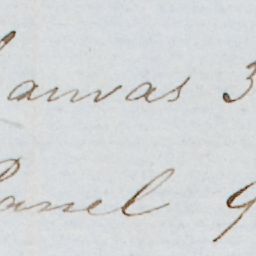 Canvas 3
Panel 9